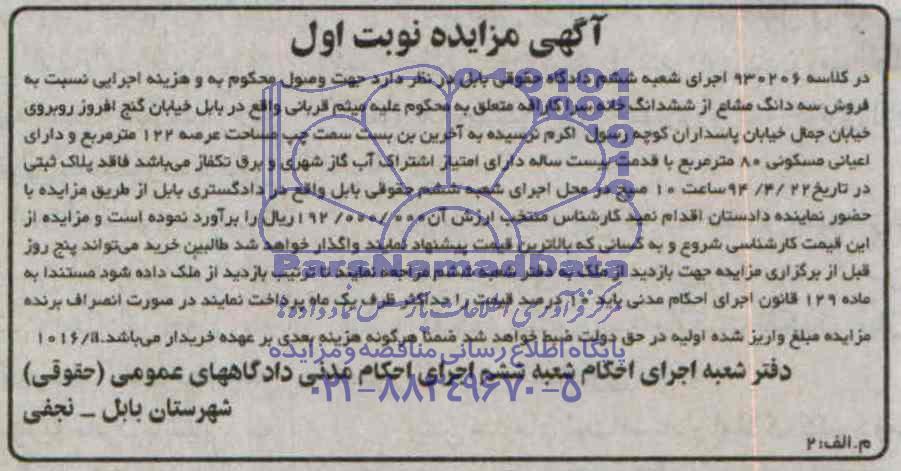 آگهی مزایده نوبت اول
در کلاسه ۹۳۰۲۰۶ اجرای شعبه ششم دادگاه حقوقی بابل در نظر دارد جهت وصول محکوم به و هزینه اجرایی نسبت به
فروش سه دانگ مشاع از ششدانگ خانه سرا کارافه متعلق به محکوم علیه میثم قربانی واقع در بابل خیابان گنج افروز روبروی
خیابان جمال خیابان پاسداران کوچه رسول اکرم نرسیده به آخرین بن بست سمت چپ مساحت عرصه ۱۲۲ مترمربع و دارای
اعیانی مسکونی ۸۰ مترمربع با قدمت بیست ساله دارای امتیاز اشتراک آب گاز شهری و برق تکفاز می‌باشد فاقد پلاک ثبتی
در تاریخ ۲۲ /۴/ ۹۴ ساعت ۱۰ صبح در محل اجرای شعبه ششم حقوقی بابل واقع در دادگستری بابل از طریق مزایده با
حضور نماینده دادستان اقدام نمید کارشناس منتخب ارزش آن ۱۹۲/۰۰۰/۰۰۰ ریال را برآورد نموده است و مزایده از
این قیمت کارشناسی شروع و به کسانی که بالاترین قیمت پیشنهاد نمایند واگذار خواهد شد طالبین خرید می‌تواند پنج روز
قبل از برگزاری مزایده جهت بازدید از ملک به دفتر شعبه ششم مراجعه نمایند تا ترتیب بازدید از ملک داده شود مستندا به
ماده ۱۲۹ قانون اجرای احکام مدنی باید ۱۰ درصد قیمت را حداکثر ظرف یک ماه پرداخت نمایند در صورت انصراف برنده
مزایده مبلغ واریز شده اولیه در حق دولت ضبط خواهد شد ضمناً هرگونه هزینه بعدی بر عهده خریدار می‌باشد.۱۰۱۶/a
دفتر شعبه اجرای احکام شعبه ششم اجرای احکام مدنی دادگاههای عمومی (حقوقی)
شهرستان بابل ــ نجفی
م.الف:۲
ParsNamadData
مرکز فرآوری اطلاعات پارس نماد داده‌ها
پایگاه اطلاع رسانی مناقصه و مزایده
۰۲۱-۸۸۳۴۹۶۷۰-۵